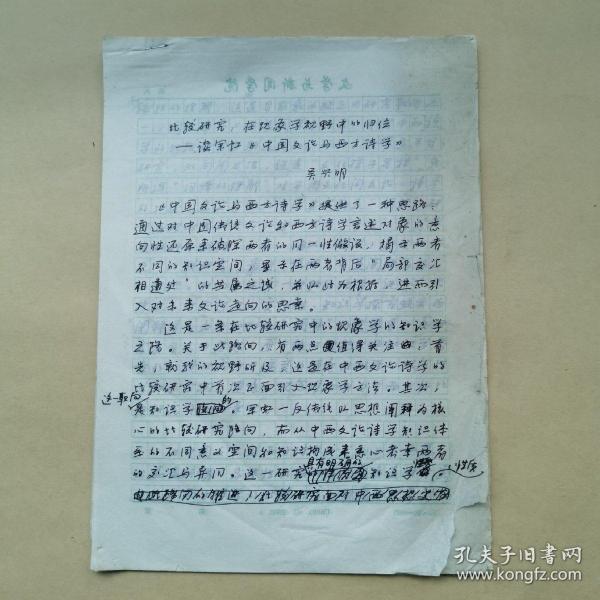 文学与新闻学院
比较研究：在现象学视野中的归位
——读余虹《中国文论与西方诗学》
吴兴明
《中国文论与西方诗学》提供了一种思路：
通过对中国传统文论和西方诗学言述对象的意
向性还原来破除两者的同一性假设，揭示两者
不同的知识空间，显示在两者背后“局部交汇
相通处”的共属之域，并以此为根据，进而引
入对未来文论走向的思索。
这是一条在比较研究中的现象学的知识学
之路。关于此路向，有两点值得关注：首
先，就我的视野所及，这是在中西文论诗学的
比较研究中首次正面引入现象学方法。其次，
这一取向的
知识学。余虹一反传统以思想阐释为核
心的比较研究路向，而从中西文论诗学知识体
系的不同意义空间和知识构成来悉心考查两者
的交汇与异同。这一研究
具有明确的
知识学
性质
孔夫子旧书网
www.kongfz.com